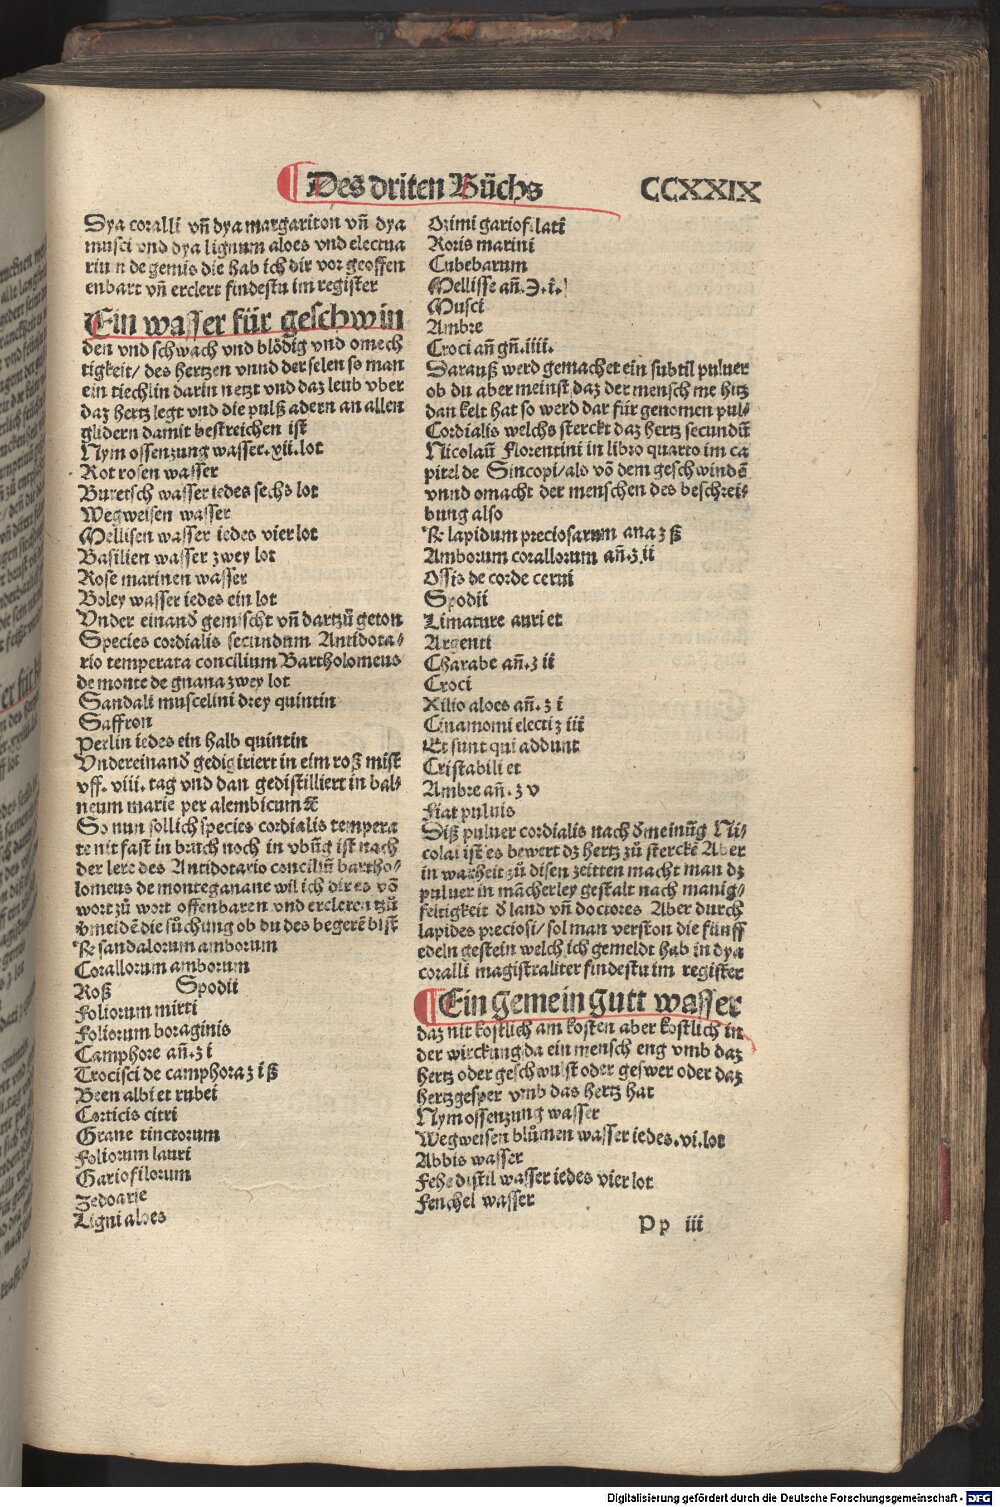 Des driten Bůchs
CCXXIX
Dya coralli vñ dya margariton vñ dya
musci vnd dya lignum aloes vnd electua
rium de gemis die hab ich dir vor geoffen
enbart vñ erclert findestu im register
Ein wasser für geschwin
den vnd schwach vnd blödig vnd omech
tigkeit/ des hertzen vnnd der selen so man
ein tiechlin darin netzt vnd daz leub vber
daz hertz legt vnd die pulß adern an allen
glidern damit bestreichen ist
Nym ossenzung wasser.vii.lot
Rot rosen wasser
Buretsch wasser iedes sechs lot
Wegweisen wasser
Mellisen wasser iedes vier lot
Basilien wasser zwey lot
Rose marinen wasser
Boley wasser iedes ein lot
Vnder einand gemischt vñ dartzů geton
Species cordialis secundum Antidota/
rio temperata concilium Bartholomeus
de monte de gnana zwey lot
Sandali muscelini drey quintin
Saffron
Perlin iedes ein halb quintin
Vndereinand gedigiriert in eim roß mist
vff.viii.tag vnd dan gedistilliert in bal/
neum marie per alembicum
So nun sollich species cordialis tempera
te nit fast in bruch noch in vbũg ist nach
der lere des Antidotario conciliũ bartho/
lomeus de monteganane wil ich dir es võ
wort zů wort offenbaren vnd ercleren tzů
vmeidẽ die sůchung ob du des begerẽ bist
℞ sandalorum amborum
Corallorum amborum
Roß Spodii
Foliorum mirti
Foliorum boraginis
Camphore añ.ʒ i
Trocisci de camphora ʒ i ß
Been albi et rubei
Corticis citri
Grane tinctorum
Foliorum lauri
Gariofilorum
Zedoarie
Ligni aloes
Ozimi gariofilati
Roris marini
Cubebarum
Mellisse añ.℈.i.
Musci
Ambre
Croci añ gñ.iiii.
Darauß werd gemachet ein subtil puluer
ob du aber meinst daz der mensch me hitz
dan kelt hat so werd dar für genomen pul/
Cordialis welchs sterckt daz hertz secundũ
Nicolaũ Florentini in libro quarto im ca
pitel de Sincopi/als võ dem geschwindẽ
vnnd omacht der menschen des beschrei/
bung also
℞ lapidum preciosarum ana ʒ ß
Amborum corallorum añ.ʒ.ii
Ossis de corde cerui
Spodii
Limature auri et
Argenti
Charabe añ.ʒ ii
Croci
Xilio aloes añ.ʒ i
Cinamomi electi ʒ iii
Et sunt qui addunt
Cristabili et
Ambre añ.ʒ v
Fiat puluis
Diß puluer cordialis nach dmeinũg Ni/
colai ist es bewert dz hertz zů sterckẽ Aber
in warheit zů disen zeitten macht man dz
puluer in mãcherley gestalt nach manig/
feltigkeit d land vñ doctores Aber durch
lapides preciosi/ sol man verston die fünff
edeln gestein welch ich gemeldt hab in dya
coralli magistraliter findestu im register
Ein gemein gutt wasser
daz nit kostlich am kosten aber kostlich in
der wirckung da ein mensch eng vmb daz
hertz oder geschwulst oder geswer oder daz
hertzgesper vmb das hertz hat
Nym ossenzung wasser
Wegweisen blůmen wasser iedes.vi.lot
Abbis wasser
Fehe distil wasser iedes vier lot
Fenchel wasser
Pp iii
Digitalisierung gefördert durch die Deutsche Forschungsgemeinschaft - DFG